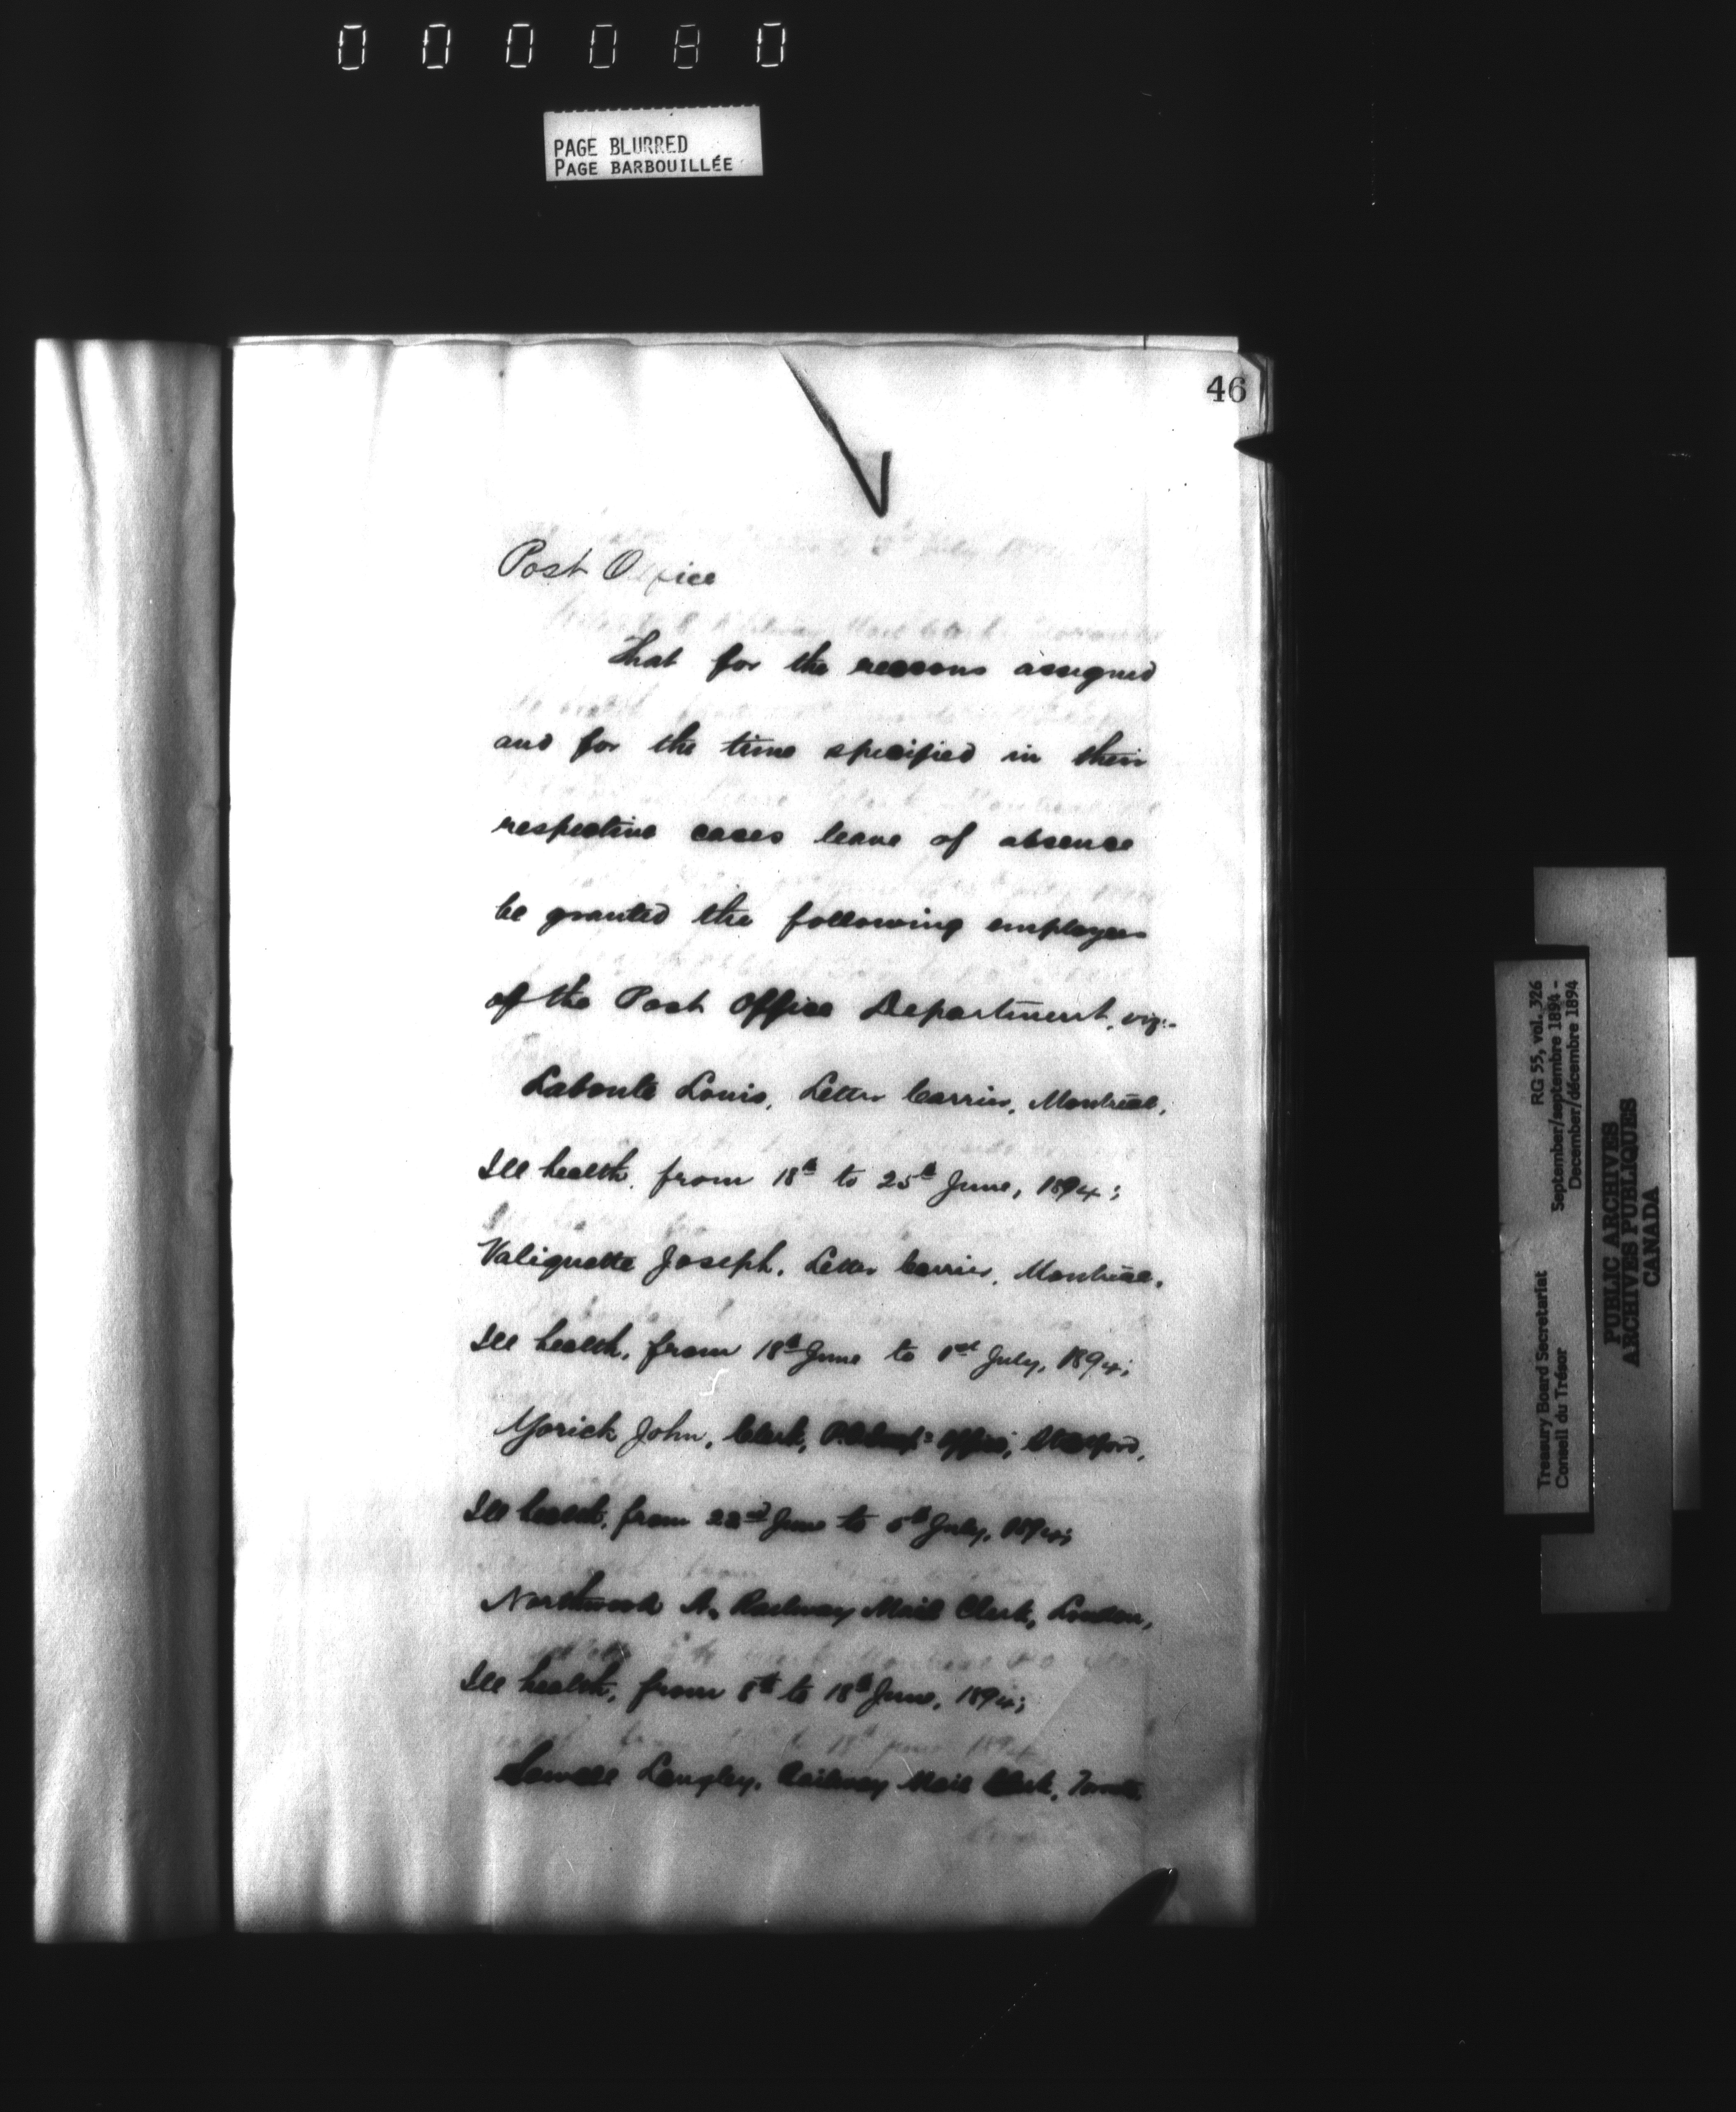 000080
PAGE BLURRED
PAGE BARBOUILLÉE
46
Post Office
That for the reasons assigned
and for the time specified in their
respective cases leave of absence
be granted the following employees
of the Post Office Department, viz:-
Labonté Louis, Letter Carrier, Montreal,
Ill health, from 18th to 25th June, 1894;
Valiquette Joseph, Letter Carrier, Montreal,
Ill health, from 18th June to 1st July, 1894;
Yorick John, Clerk, Office, Stratford,
Ill health, from 22nd June to July, 1894;
Northwood A., Railway Mail Clerk, London,
Ill health, from 8th to 18th June, 1894;
Langley, Railway Mail Clerk, Toronto,
RG 55, vol. 326
September/septembre 1894 -
December/décembre 1894
Treasury Board Secretariat
Conseil du Trésor
PUBLIC ARCHIVES
ARCHIVES PUBLIQUES
CANADA